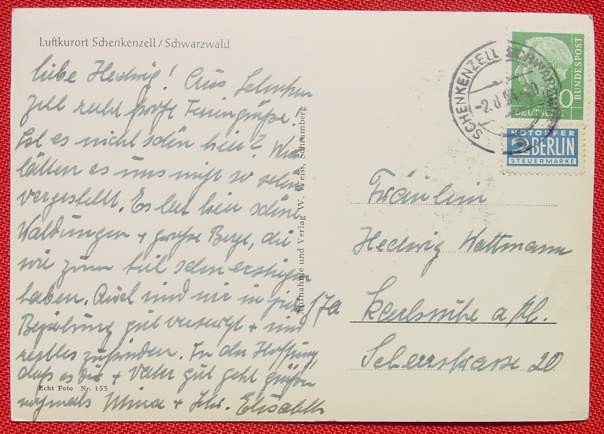 Luftkurort Schenkenzell / Schwarzwald
liebe Hedwig! Aus Schenken
zell recht herzl. Feriengrüße.
Ist es nicht schön hier? Wir
hätten es uns nicht so schön
vorgestellt. Es hat hier schöne
Waldungen + große Berge, die
wir zum teil schon erstiegen
haben. Auch sind wir in jeder
Beziehung gut versorgt + sind
restlos zufrieden. In der Hoffnung
daß es Dir + Vater gut geht grüßen
nochmals Mina + Schw. Elisabeth
Echt Foto Nr. 155
Aufnahme und Verlag W. Weiss, Schramberg
SCHENKENZELL (SCHWARZWALD)
DEUTSCHE
BUNDESPOST
10
NOTOPFER
2 BERLIN
STEUERMARKE
Fräulein
Hedwig Wattmann
17a
Karlsruhe a/Rh.
Scherrstrasse 20